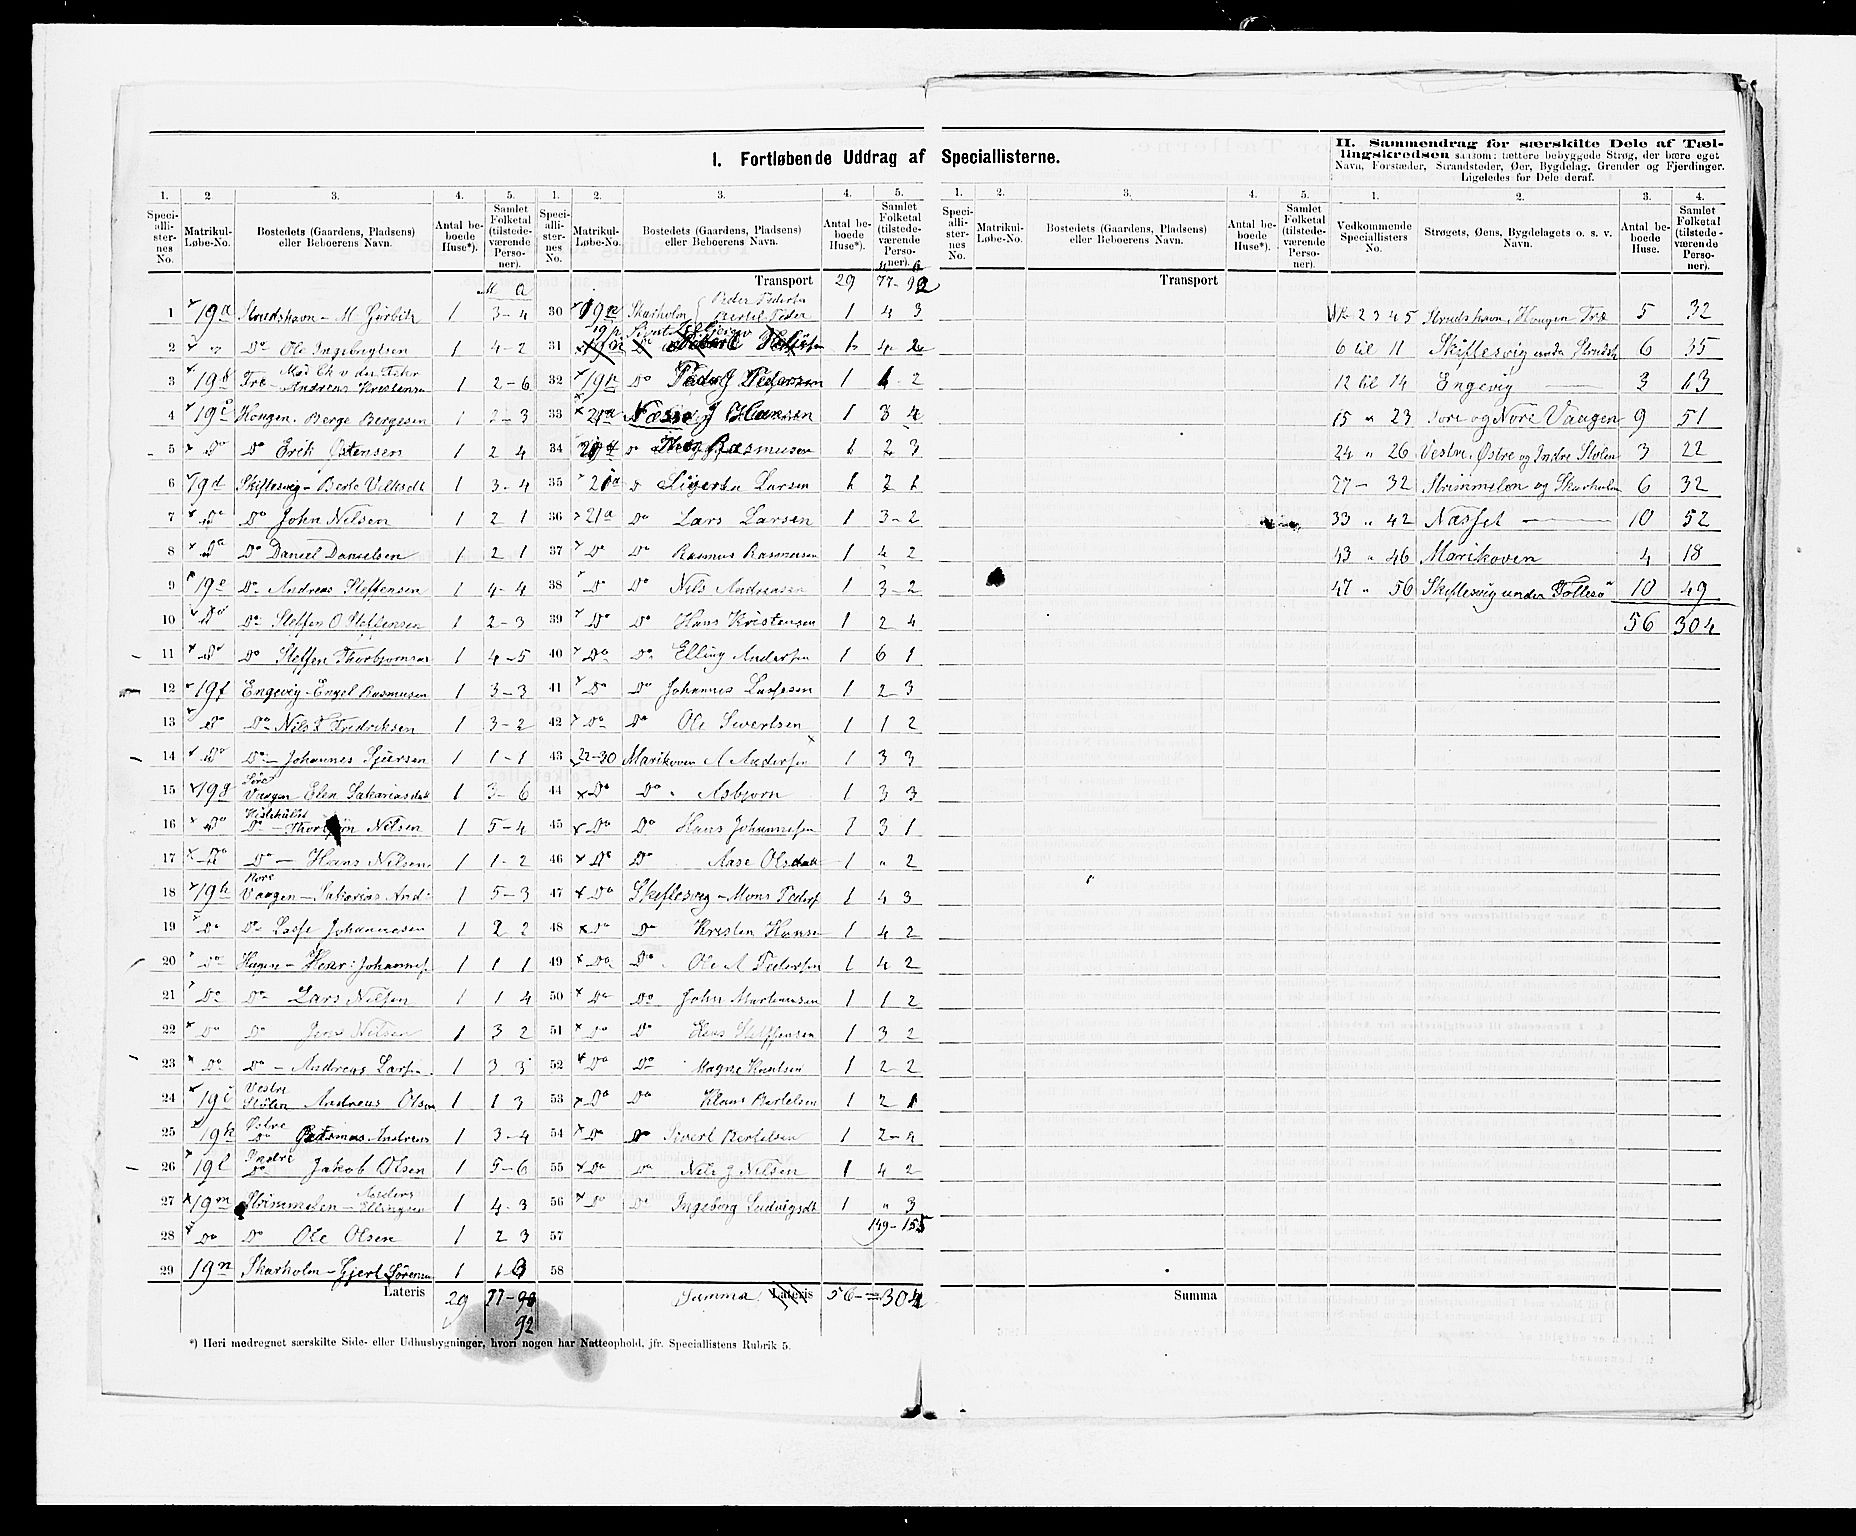 I. Fortløbende Uddrag af Speciallisterne.
1. 2 3. 4. 5.
Speci-alli-ster-nes No. Matrikul-Løbe-No. Bostedets (Gaardens, Pladsens) eller Beboerens Navn. Antal be-boede Huse*). Samlet Folketal (tilstede-værende Perso-ner).
M a
1 19a Strudshavn - M 1 3-4
2 " Do Ole Ingebrigtsen 1 4-2
3 19b Træ - Andreas Kristensen 1 2-6
4 19c Hougen. Berge Bergesen 1 2-3
5 Do Do Erik Ostensen 1 2 4
6 19d Skiflesvig - Berte 1 3-4
7 Do Do John Nilsen 1 2 1
8 Do Do Daniel Danielsen 1 2 1
9 19e Do Andreas Steffensen 1 4-4
10 Do Do Steffen O Steffensen 1 2-3
11 Do Do Steffen 1 4-5
12 19f Engevig - Engel Rasmusen 1 3-3
13 Do Do Nils F Fredriksen 1 3-2
14 Do Do - Johannes 1 1-1
15 19g Søre Vaagen - Elen 1 3-6
16 Do Do - Nilsen 1 5-4
17 Do Do - Hans Nilsen 1 1-2
18 19h Nore Vaagen - Sakarias And: 1 5-3
19 Do Do Lasse Johannesen 1 2 2
20 Do - Henr: Johannes 1 1 1
21 Do Do Lars Nilsen 1 1 4
22 Do Do Jens Nilsen 1 3 2
23 Do Do - Andreas Larsen 1 3 3
24 19i Vestre Stølen Andreas Olsen 1 1 3
25 19k Østre Do Rasmus Andreas 1 3-4
26 19l Indre Do Jakob Olsen 1 5-6
27 19m Strimmelen - Anders Ellingsen 1 4-3
28 Do Do Ole Olsen 1 2 3
29 19n Skarholm - Gjert Sørensen 1
Lateris 29 77-
92
1. 2. 3. 4. 5.
Speci-alli-ster-nes No. Matrikul-Løbe-No. Bostedets (Gaardens, Pladsens) eller Beboerens Navn. Antal be-boede Huse*). Samlet Folketal (tilstede-værende Perso-ner).
Transport 29 77-92
30 19n Skarholm Peder Pedersen 1 4 3
31
32 19n Do Peder J Pedersen 1
33 21a Næsse J Hansen 1 3 4
34 Do Rasmusen 1 2 3
35 21a Do Larsen 1 2 1
36 21a Do Lars Larsen 1 3-2
37 Do Do Rasmus Rasmusen 1 4 2
38 Do Do Nils Andreasen 1 3-2
39 Do Do Hans Kristensen 1 2 4
40 Do Do Elling Andersen 1 6 1
41 Do Do Johannes Lassesen 1 2-3
42 Do Do Ole Sivertsen 1 1 2
43 22-30 Marikoven A Andersen 1 3 3
44 Do Do Asbjørn 1 3 3
45 Do Do Hans Johannesen 1 3 1
46 Do Do Aase 1 " 2
47 Do Skiflesvig - Mons Peders 1 4 3
48 Do Do Kristen Hansen 1 4 2
49 Do Do Ole A Pedersen 1 4 2
50 Do Do John Martinusen 1 1 2
51 Do Do Steffensen 1 3 2
52 Do Do Magne Knutsen 1 2-2
53 Do Do Klaus Bertelsen 1 2 1
54 Do Do Sivert Bertelsen 1 2-4
55 Do Do Nils J Nilsen 1 4 2
56 Do Do Ingeborg Ludvigsdt 1 " 3
57 149-155
58
Summa Lateris 56 - = 304
*) Heri medregnet særskilte Side- eller Udhusbygninger, hvori nogen har Natteophold, jfr. Speciallistens Rubrik 5.
1. 2. 3. 4. 5.
Speci-alli-ster-nes No. Matrikul-Løbe-No. Bostedets (Gaardens, Pladsens) eller Beboerens Navn. Antal be-boede Huse*). Samlet Folketal (tilstede-værende Perso-ner).
Transport
Summa
II. Sammendrag for særskilte Dele af Tæl-
lingskredsen saasom: tættere bebyggede Strøg, der bære eget
Navn, Forstæder, Strandsteder, Øer, Bygdelag, Grender og Fjerdinger.
Ligeledes for Dele deraf.
1. 2. 3. 4.
Vedkommende Speciallisters No. Strøgets, Øens, Bygdelagets o. s. v. Navn. Antal be-boede Huse. Samlet Folketal (tilstede-værende Perso-ner).
2 3 4 5 Strudshavn, Hougen Træ 5 32
6 til 11 Skiflesvig under Strudsh 6 35
12 til 14 Engevig 3 13
15 " 23 Søre og Nore Vaagen 9 51
24 " 26 Vestre, Østre og Indre Stølen 3 22
27 - 32 Strimmelen og Skarholm 6 32
33 " 42 Næsset 10 52
43 " 46 Marikoven 4 18
47 " 56 Skiflesvig under Follesø 10 49
56 304